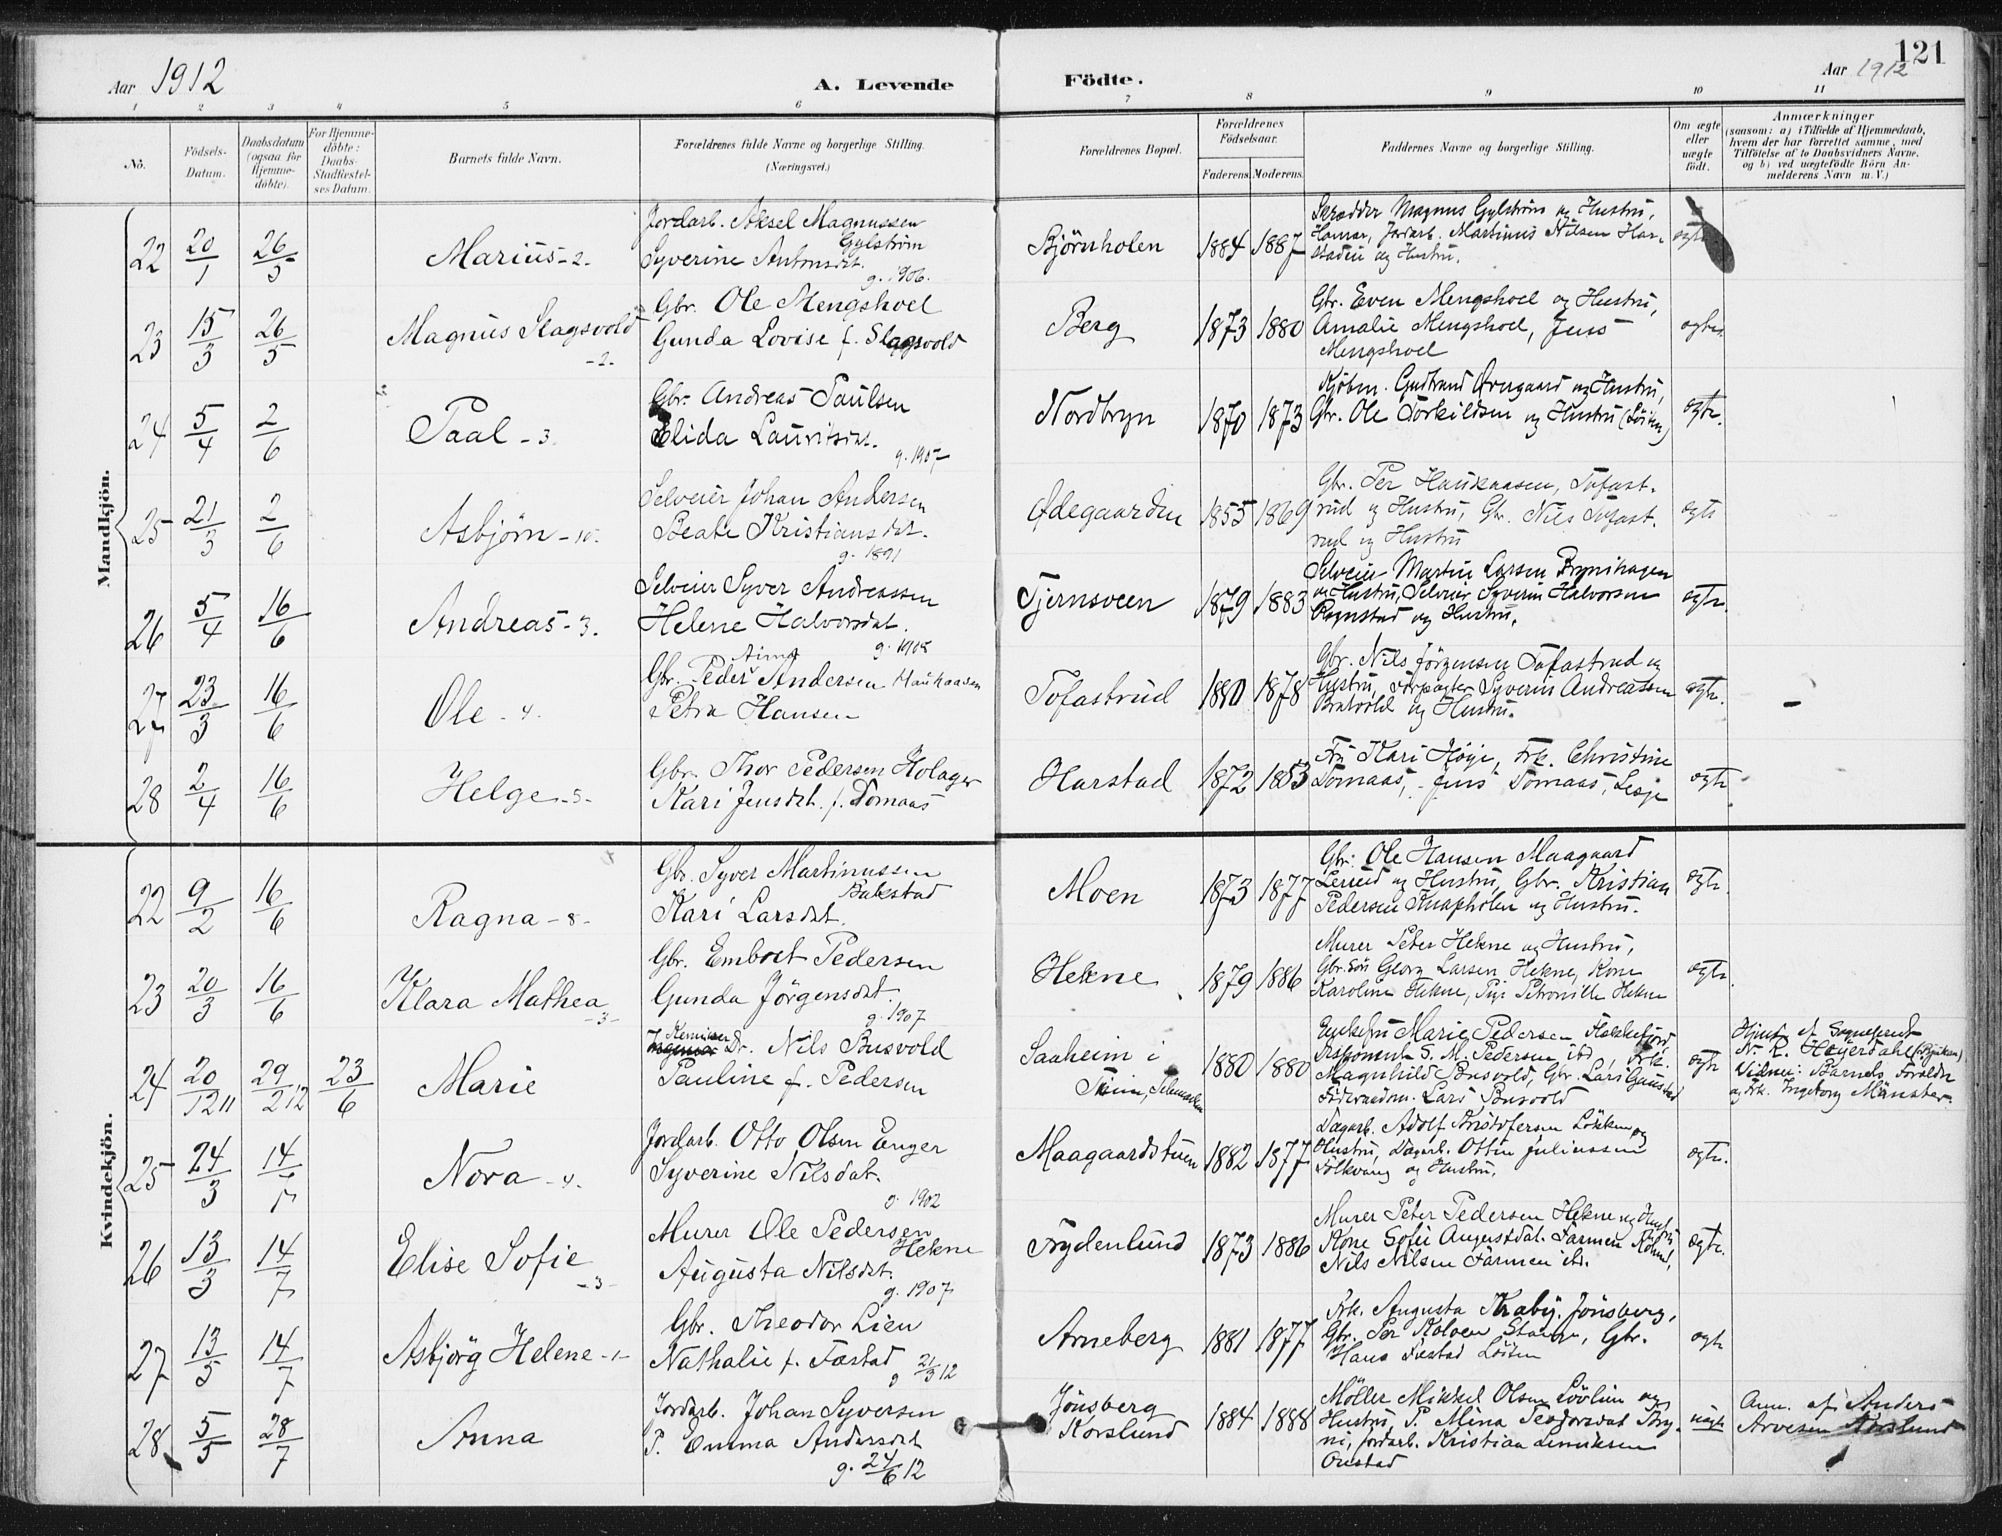 121
Aar 1912
A. Levende
Födte.
Aar 1912
1 2 3 4 5 6 7 8 9 10 11
No.
Födsels-
Datum.
Daabsdatum
(ogsaa for
Hjemme-
döbte).
For Hjemme-
döbte:
Daabs-
Stadfæstel-
ses Datum.
Barnets fulde Navn.
Forældrenes fulde Navne og borgerlige Stilling.
(Næringsvei.)
Forældrenes Bopæl.
Forældrenes
Födselsaar.
Faderens. Moderens.
Faddernes Navne og borgerlige Stilling.
Om ægte
eller
uægte
født.
Anmærkninger
(saasom: a) i Tilfælde af Hjemmedaab,
hvem der har forrettet samme, med
Tilföielse af to Daabsvidners Navne,
og b) ved uægtefödte Börn An-
melderens Navn m. V.)
Mandkjön.
22 20/1 26/5 Marius -2-
Jordarb. Aksel Magnussen
Gylstrøm
Syverine Antonsdt.
g. 1906.
Bjørnholen 1884 1887
Skrædder Magnus Gylstrøm og Hustru,
Hamar, Jordarb. Martinus Nilsen Har-
stadeie og Hustru.
ægte
23 15/3 26/5 Magnus Slagsvold
-2-
Gbr. Ole Mengshoel
Gunda Lovise f. Slagsvold
Berg 1873 1880
Gbr. Even Mengshoel og Hustru,
Amalie Mengshoel, Jens
Mengshoel
ægte
24 5/4 2/6 Paal -3
Gbr. Andreas Paulsen
Elida Lauritsdt.
g. 1907
Nordbryn 1870 1873
Kjøbm. Gudbrand Overgaard og Hustru,
Gbr. Ole Torkildsen og Hustru (Löiten)
ægte.
25 21/3 2/6 Asbjørn -10-
Selveier Johan Andersen
Beate Kristiansdt.
g. 1891
Ødegaarden 1855 1869
Gbr. Per Haukaasen, Tofast-
rud og Hustru, Gbr. Nils Tofast-
rud og Hustru
ægte
26 5/4 16/6 Andreas -3.
Selveier Syver Andreassen
Helene Halvorsdt.
g. 1908
Tjernsveen 1879 1883
Selveier Martin Larsen Brynihagen
og Hustru, Selveier Syverin Halvorsen
Rognstad og Hustru.
ægte.
27 23/3 16/6 Ole -4.
Gbr. Peder Andersen Haukaasen
Petra Hansen
Tofastrud 1880 1878
Gbr. Nils Jörgensen Tofastrud og
Hustru, Forpagter Syverin Andreassen
Bratvold og Hustru.
ægte.
28 2/4 16/6 Helge -5-
Gbr. Thor Pedersen Holager
Kari Jensdt. f. Domaas
Harstad 1872 1853
Fru Kari Høye, Frk. Christine
Domaas, Jens Domaas, Lesje
ægte
Kvindekjön.
22 9/2 16/6 Ragna -8-
Gbr. Syver Martinussen
Bakstad
Kari Larsdt.
Moen 1873 1877
Gbr. Ole Hansen Maagaard
Lerud og Hustru, Gbr. Kristian
Pedersen Knapholen og Hustru.
ægte.
23 20/3 16/6 Klara Mathea
-3-
Gbr. Embret Pedersen
Gunda Jörgensdt.
g. 1907
Hekne 1879 1886
Murer Peter Hekne og Hustru,
Gbr.sön Georg Larsen Hekne, Kone
Karoline Hekne, Pige Petronille Hekne
ægte
24 20/12 11 29/2 12 23/6 Marie
Kemiker
Dr. Nils Busvold
Pauline f. Pedersen
Saaheim i 1880 1880
Tinn, Telemarken
Enkefru Marie Pedersen Flekkefjord,
Disponent S. M. Pedersen ibd, Frk.
Magnhild Busvold, Gbr. Lars Gaustad
Lars Busvold
ægte
Hjemd. af Sognepræst
N. R. Heyerdahl (Rjukan)
Vidner: Barnets Forældre
og Frk. Ingeborg Münster.
25 24/3 14/7 Nora -4.
Jordarb. Otto Olsen Enger
Syverine Nilsdat.
g. 1902
Maagaardstuen 1882 1877
Dagarb. Adolf Kristofersen Løkken og
Hustru, Dagarb. Otto Juliussen
Folkvang og Hustru.
ægte.
26 13/3 14/7 Elise Sofie
-3-
Murer Ole Pedersen
Hekne
Augusta Nilsdt.
g. 1907
Frydenlund 1873 1886
Murer Peter Pedersen Hekne og Hustru
Kone Sofie Augustdat. Farmen
Nils Nilsen Farmen ibd.
ægte.
27 13/5 14/7 Asbjörg Helene -1-
Gbr. Theodor Lien
Nathalie f. Fæstad
g 21/3 12
Arneberg 1881 1877
Frk. Augusta Kraby, Jönsberg,
Gbr. Per Kolven, Stange, Gbr.
Hans Fæstad Löiten
ægte
28 5/5 28/7 Anna
Jordarb. Johan Syversen
P. Emma Andersdt
g. 24/6 12
Jönsberg
Korslund 1884 1888
Möller Mikkel Olsen Lövlien og
Hustru, P. Mina Teodorsdat Bry-
ni, Jordarb. Kristian Lenriksen
Onstad
uægte
Anm. af Anders
Arvesen Korslund